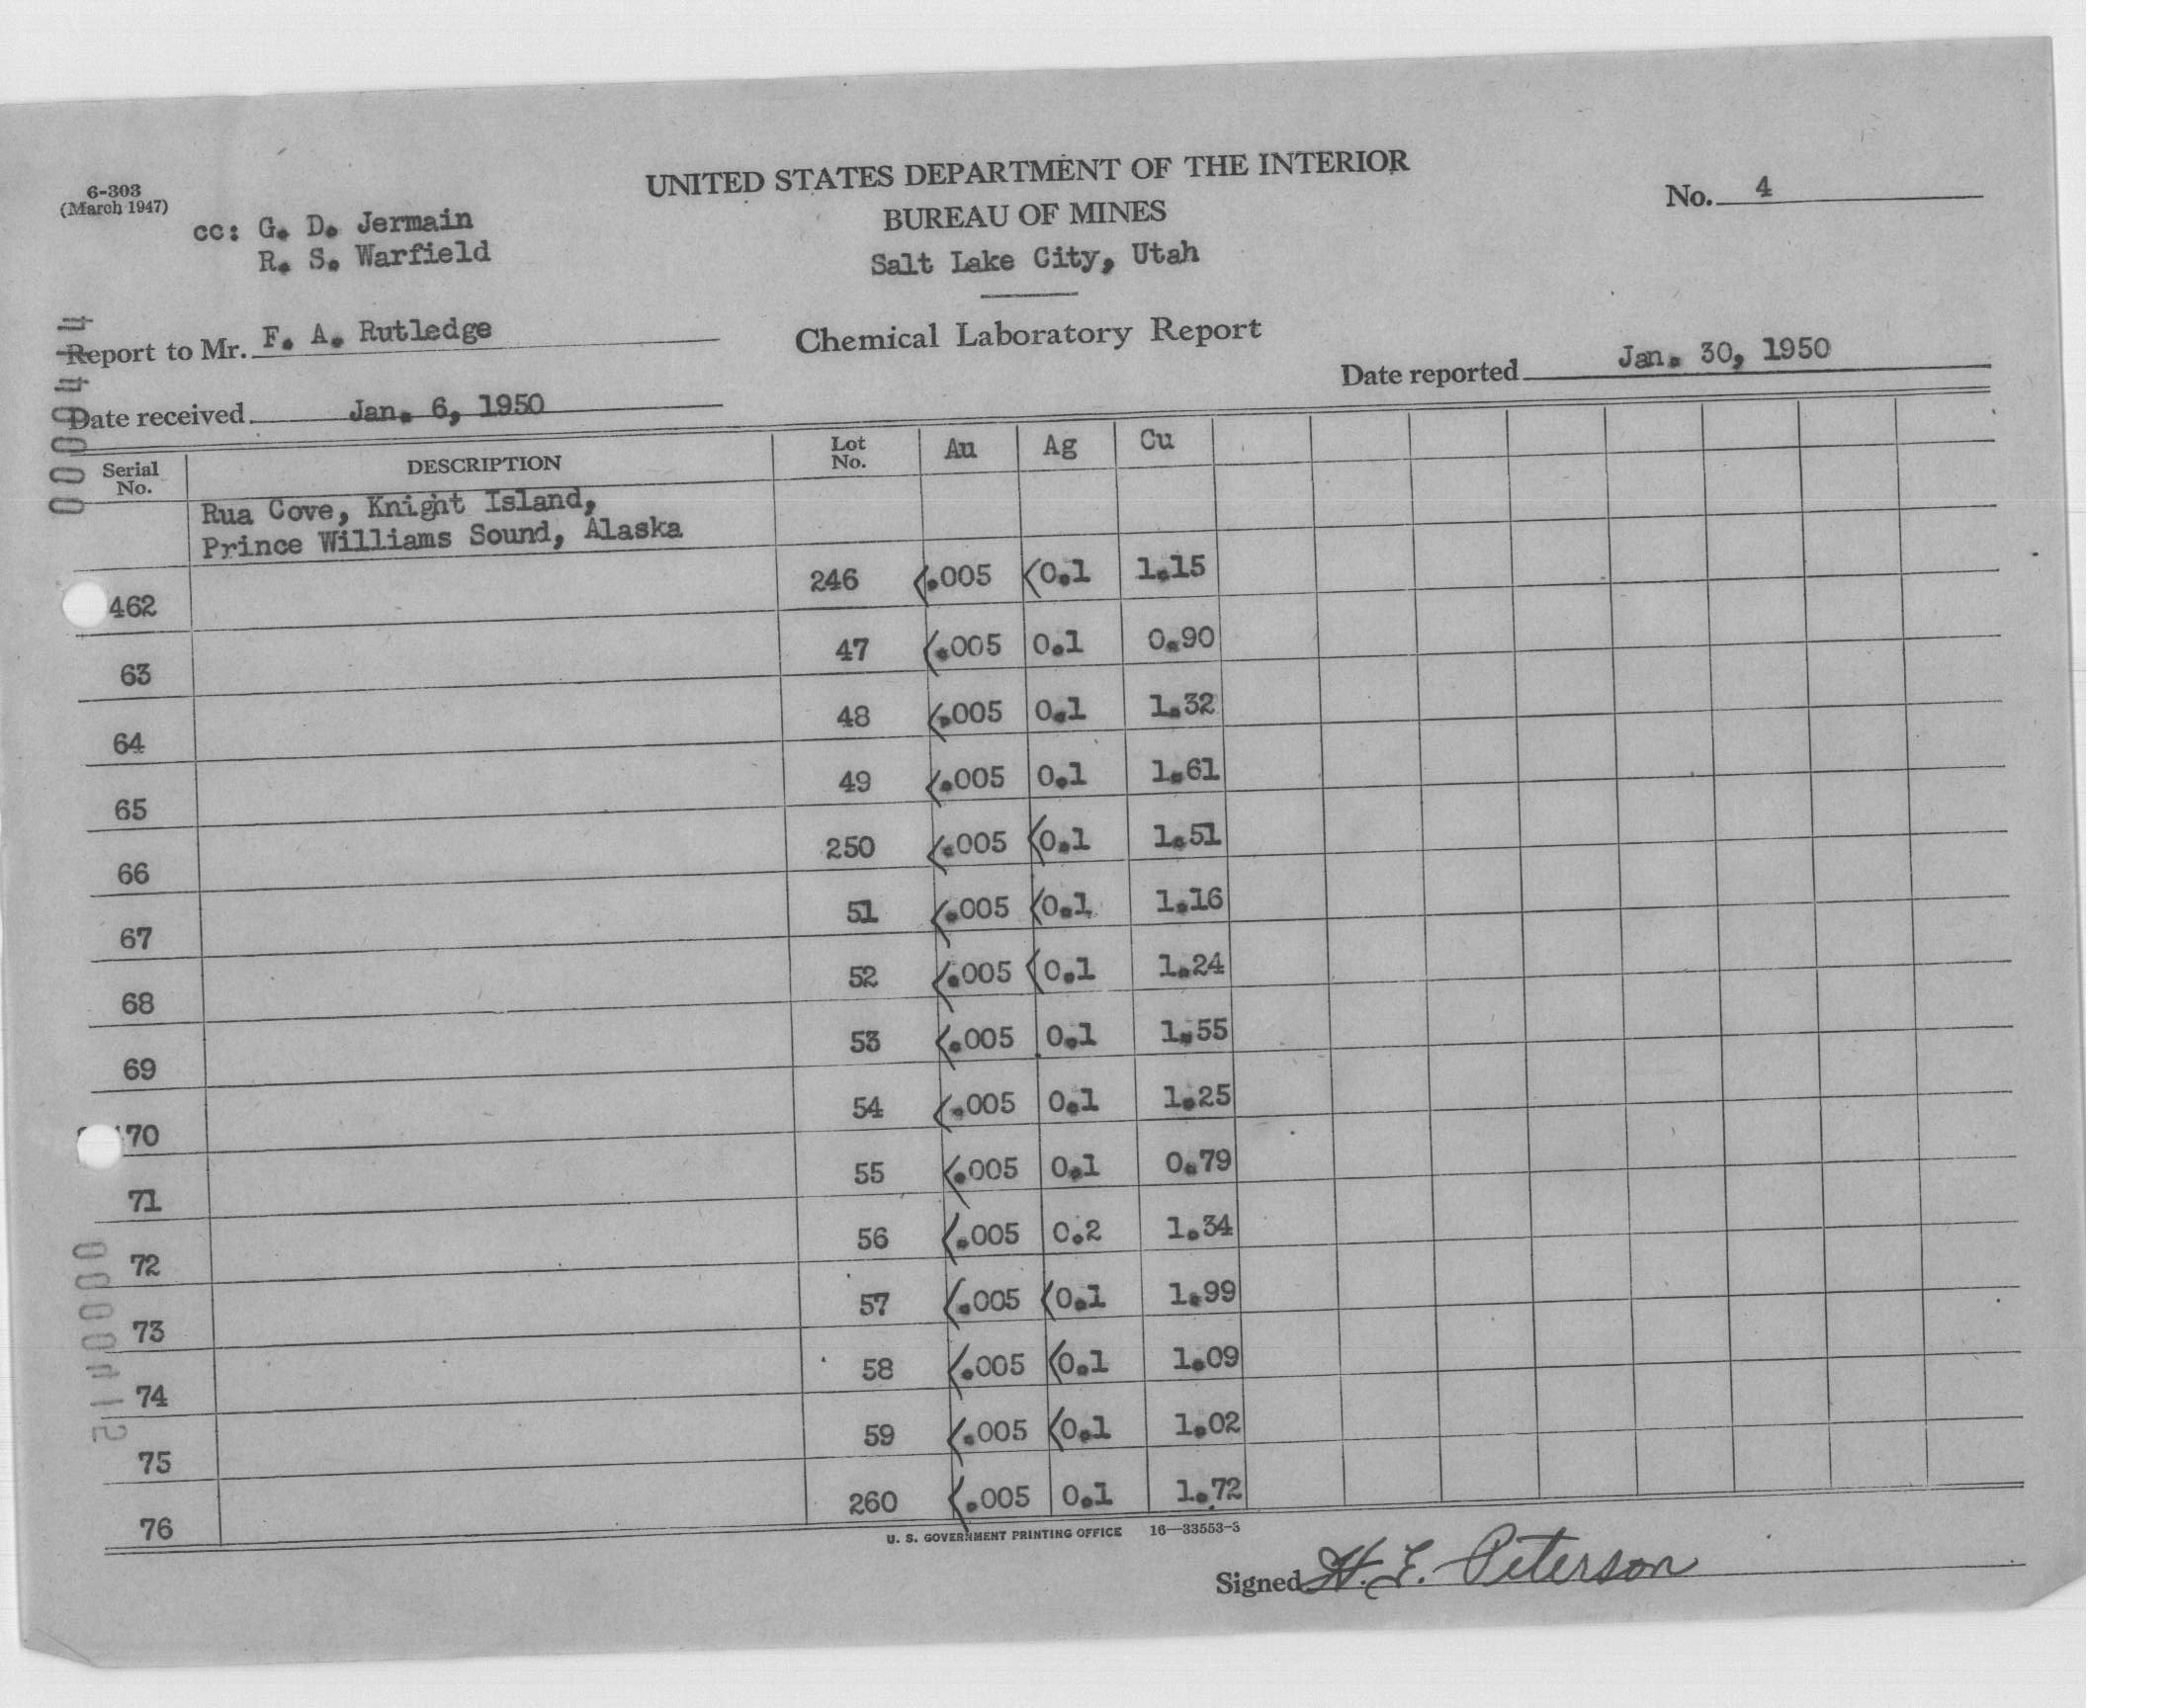 6-303
(March 1947)
cc: G. D. Jermain
R. S. Warfield
UNITED STATES DEPARTMENT OF THE INTERIOR
BUREAU OF MINES
Salt Lake City, Utah
No. 4
Report to Mr. F. A. Rutledge
Chemical Laboratory Report
Date received Jan. 6, 1950
Date reported Jan. 30, 1950
Serial No. DESCRIPTION Lot No. Au Ag Cu
Rua Cove, Knight Island,
Prince Williams Sound, Alaska
462 246 <.005 <0.1 1.15
63 47 <.005 0.1 0.90
64 48 <.005 0.1 1.32
65 49 <.005 0.1 1.61
66 250 <.005 <0.1 1.51
67 51 <.005 <0.1 1.16
68 52 <.005 <0.1 1.24
69 53 <.005 0.1 1.55
70 54 <.005 0.1 1.25
71 55 <.005 0.1 0.79
72 56 <.005 0.2 1.34
73 57 <.005 <0.1 1.99
74 58 <.005 <0.1 1.09
75 59 <.005 <0.1 1.02
76 260 <.005 0.1 1.72
U. S. GOVERNMENT PRINTING OFFICE 16—33553-3
Signed H. E. Peterson